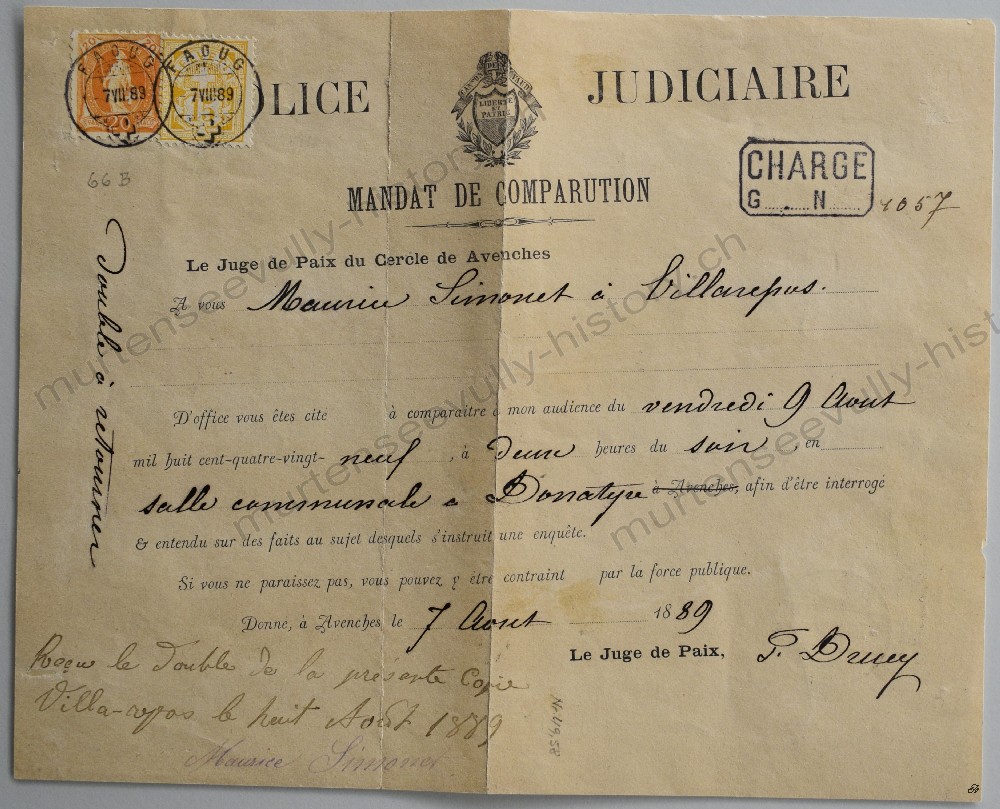 FAOUG
7VII.89
20
FAOUG
7VIII89
15
LICE JUDICIAIRE
LIBERTÉ
ET
PATRIE
CHARGE
G N 1057
66 B
MANDAT DE COMPARUTION
Le Juge de Paix du Cercle de Avenches
A vous Maurice Simonet à Villarepos.
D'office vous êtes cité à comparaître à mon audience du vendredi 9 Août
mil huit cent-quatre-vingt- neuf, à deux heures du soir, en
salle communale à Donatyre à Avenches, afin d'être interrogé
& entendu sur des faits au sujet desquels s'instruit une enquête.
Si vous ne paraissez pas, vous pouvez y être contraint par la force publique.
Donne, à Avenches le 7 Août 1889
Le Juge de Paix, F. Druey
Double à retourner
Reçu le Double De la présente Copie
Villa-repos le huit Août 1889
Maurice Simonet
murtenseevully-history.ch
murtenseevully-history.ch
murtenseevully-hist